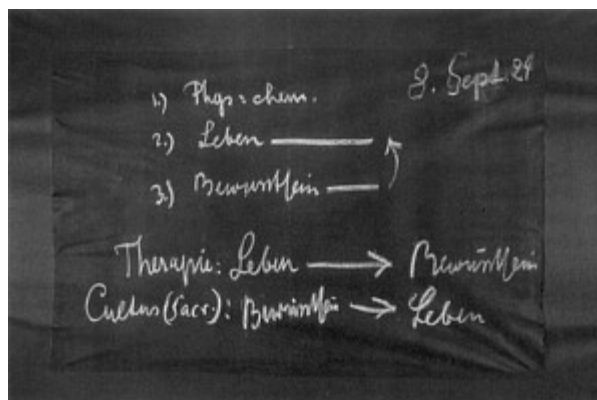 8. Sept. 24
1.) Phys = chem.
2.) Leben
3.) Bewusstsein
Therapie: Leben → Bewusstsein
Cultus (Sacr): Bewusstsein → Leben